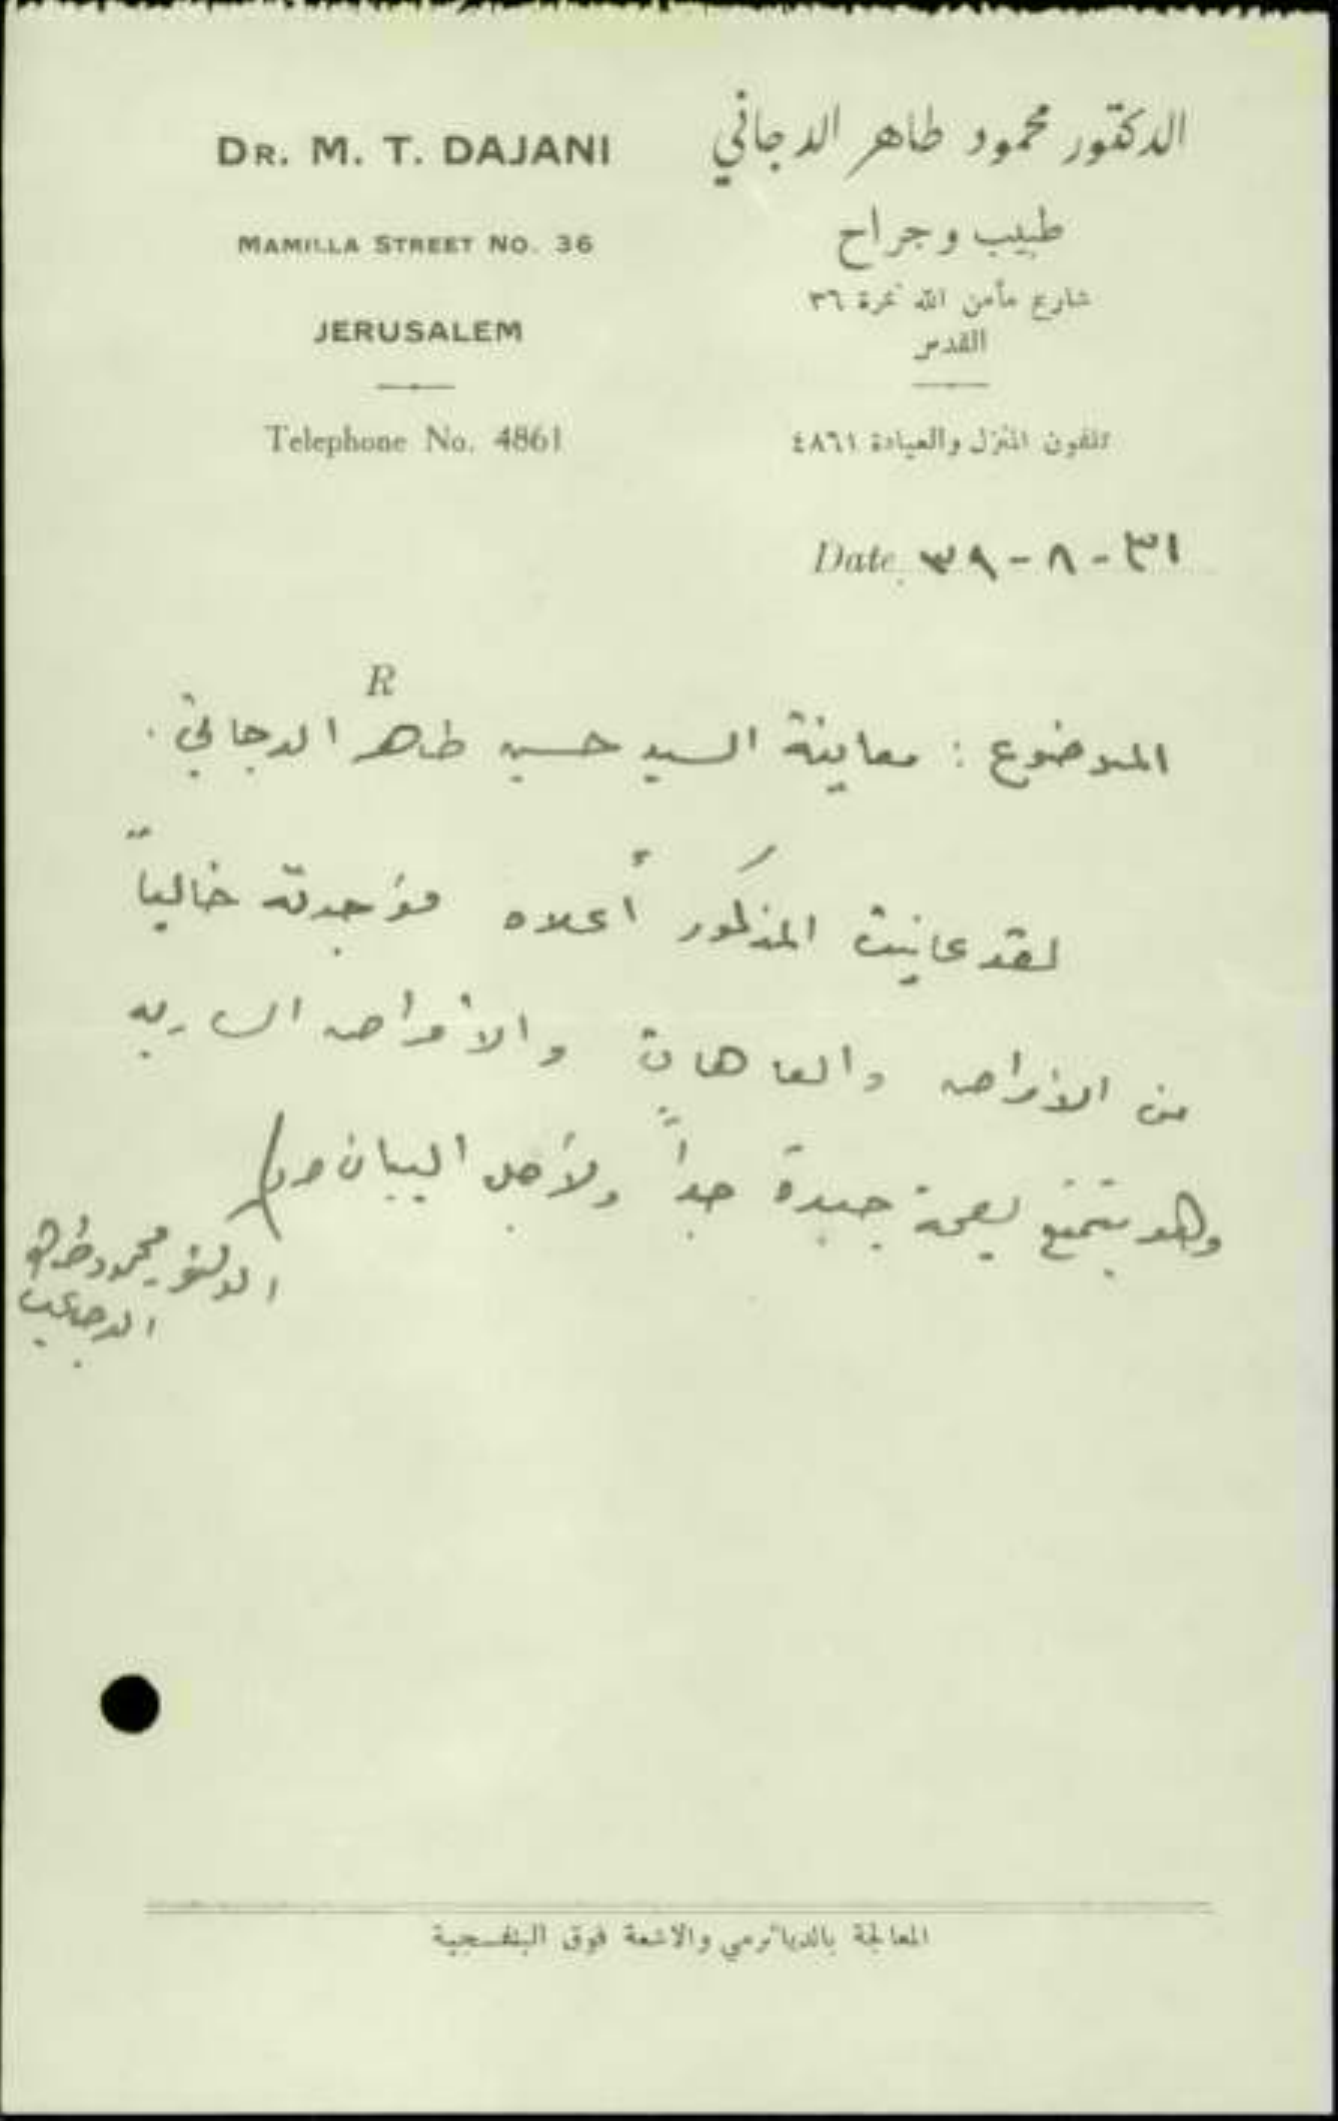 DR. M. T. DAJANI
MAMILLA STREET NO. 36
JERUSALEM
Telephone No. 4861
الدكتور محمود طاهر الدجاني
طبيب وجراح
شارع مأمن الله نمرة ٣٦
القدس
تلفون المنزل والعيادة ٤٨٦١
Date ٣١ - ٨ - ٣٩
R
الموضوع : معاينة السيد حسين طاهر الدجاني .
لقد عاينت المذكور أعلاه فوجدته خالياً
من الأمراض والعاهات والأمراض الساريه
وهو يتمتع بصحة جيدة جداً ولأجل البيان
الدكتور محمود طاهر
الدجاني
المعالجة بالدياترمي والاشعة فوق البنفسجية